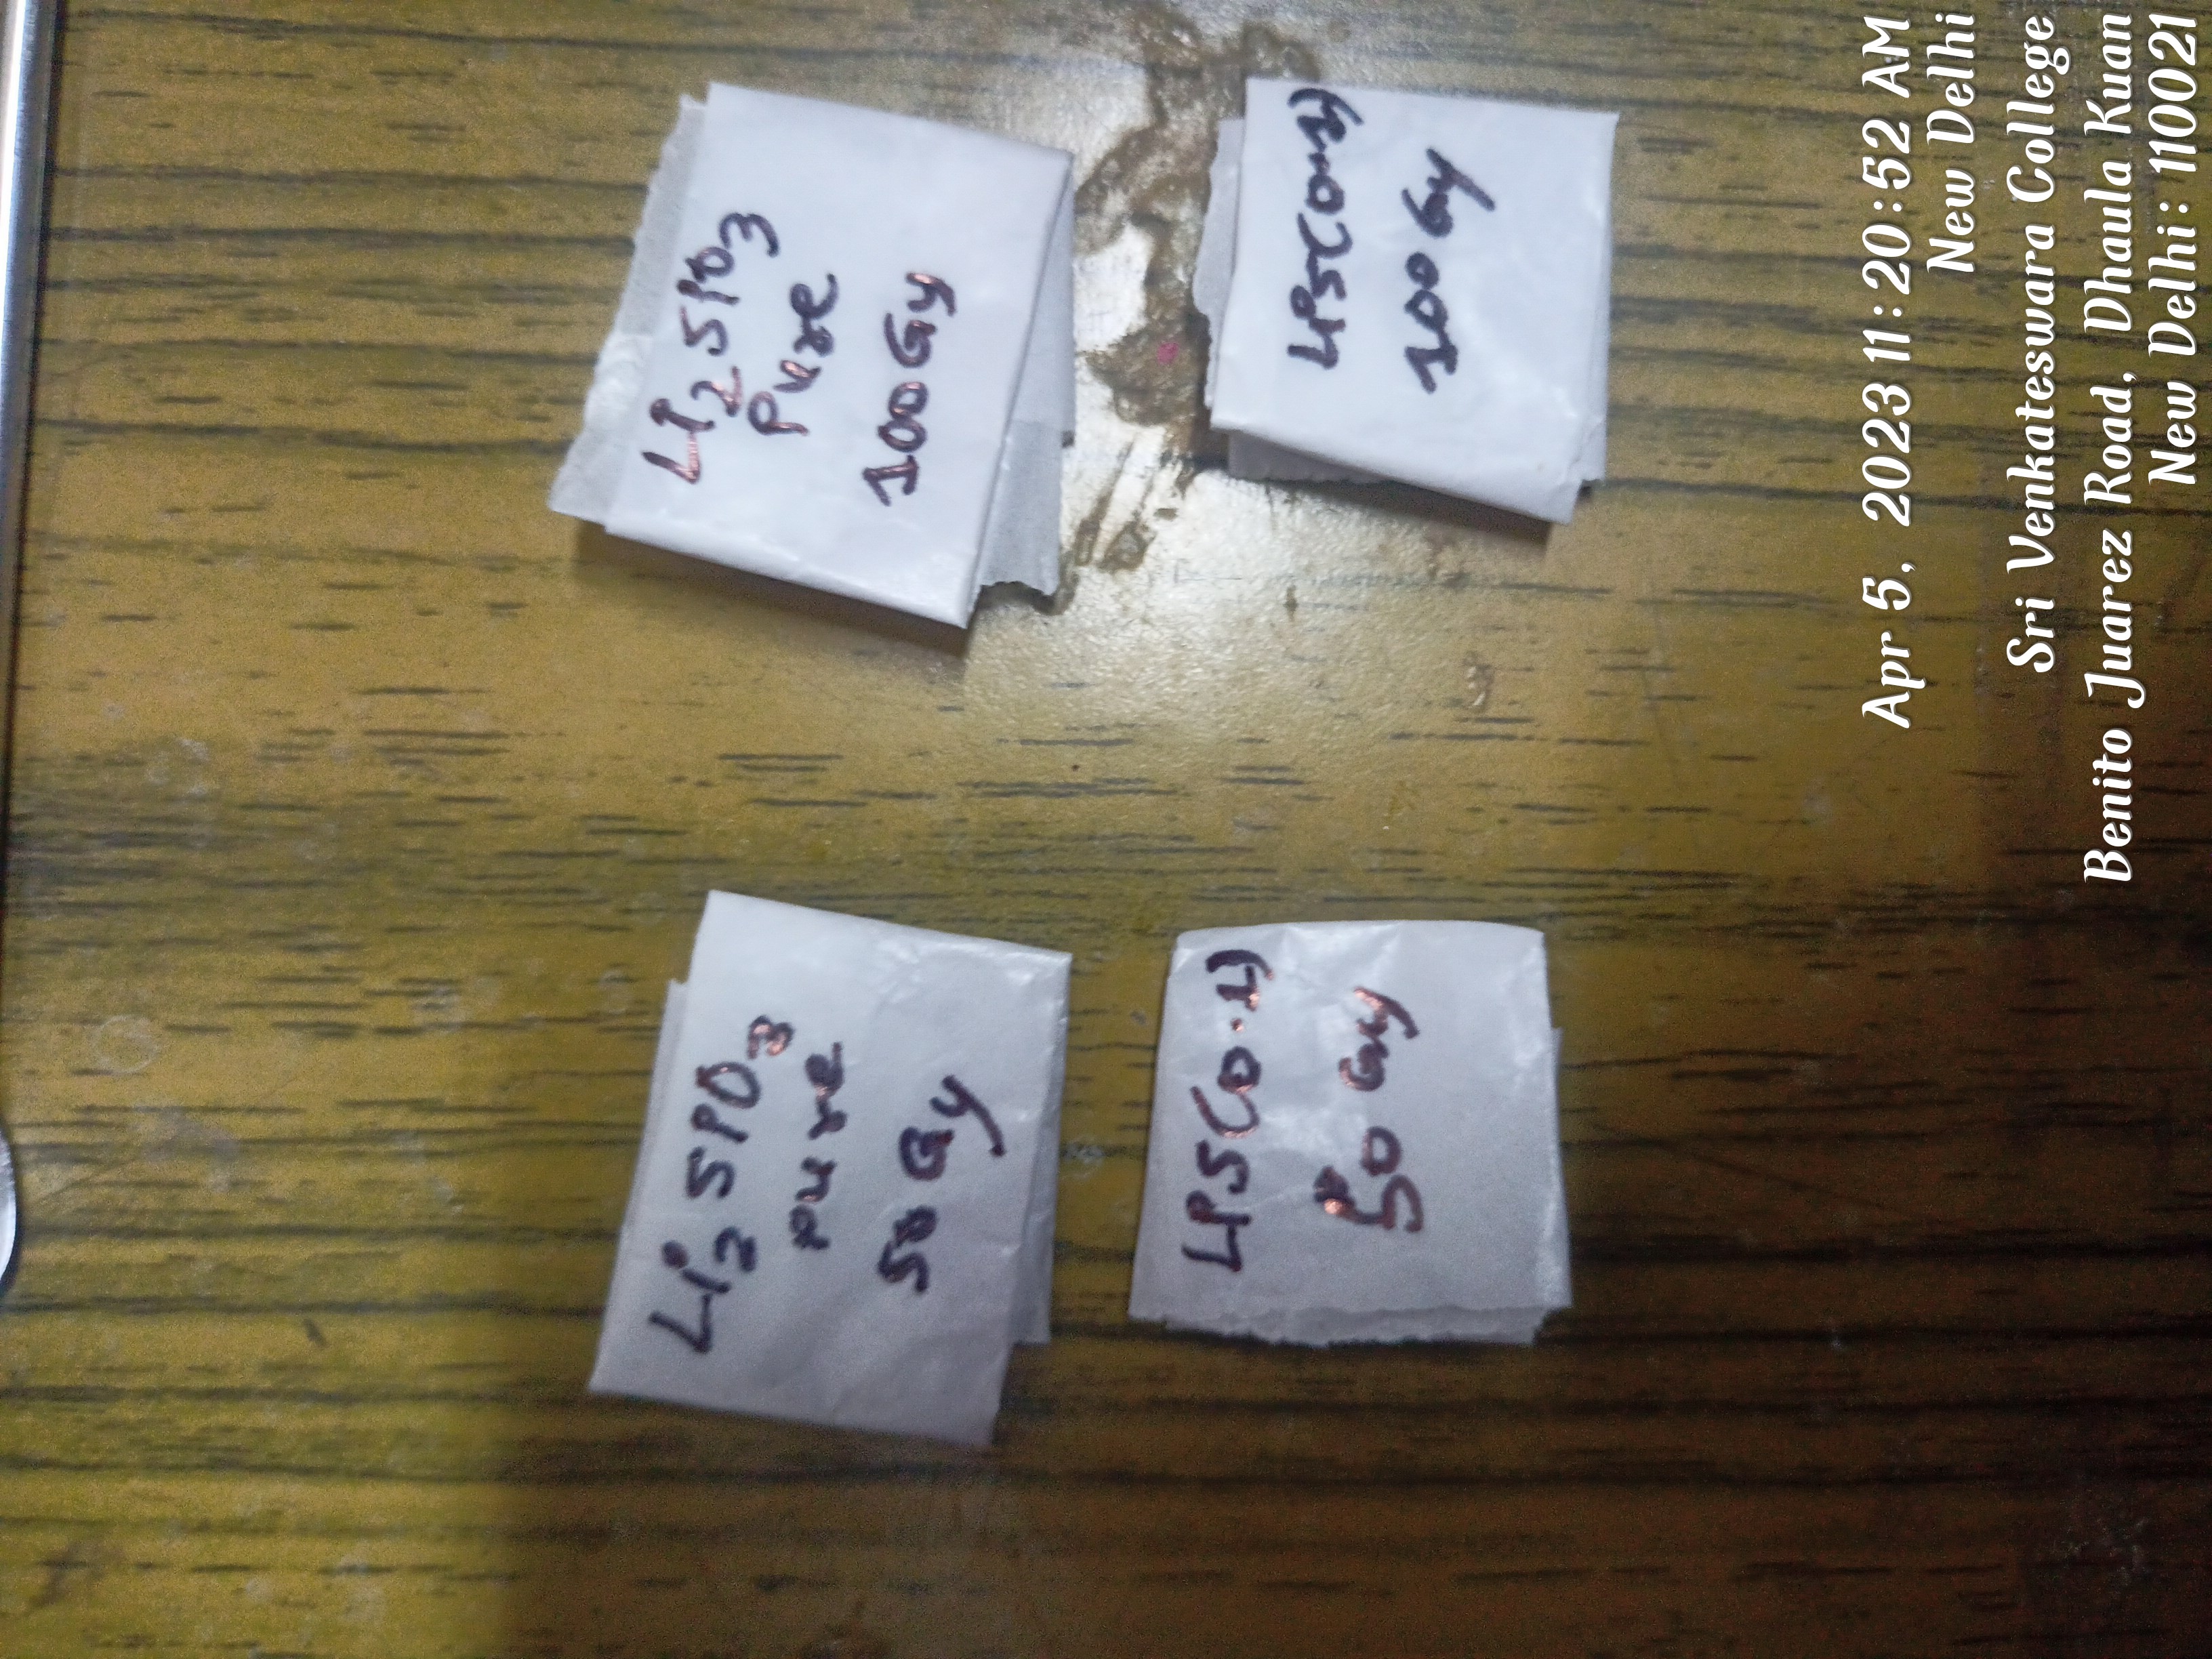 Li2SiO3
pure
50 Gy
Li2SiO3
Pure
100 Gy
LiS(0.1)
50 Gy
LiS(0.1)
100 Gy
Apr 5, 2023 11:20:52 AM
New Delhi
Sri Venkateswara College
Benito Juarez Road, Dhaula Kuan
New Delhi: 110021